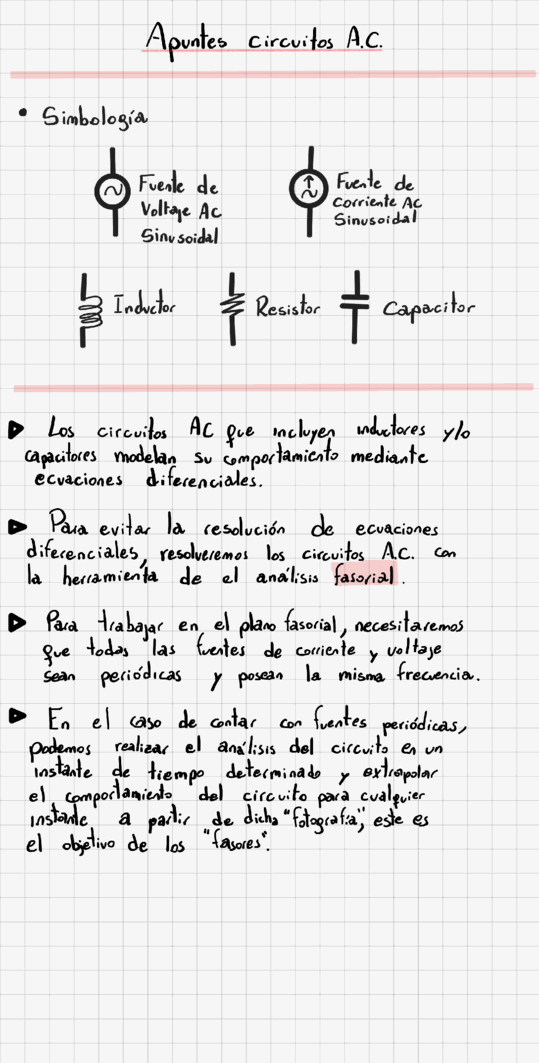 Apuntes circuitos A.C.
• Simbología
Fuente de
Voltaje AC
Sinusoidal
Fuente de
Corriente AC
Sinusoidal
Inductor
Resistor
Capacitor
Los circuitos AC que incluyen inductores y/o
capacitores modelan su comportamiento mediante
ecuaciones diferenciales.
Para evitar la resolución de ecuaciones
diferenciales, resolveremos los circuitos A.C. con
la herramienta de el análisis fasorial.
Para trabajar en el plano fasorial, necesitaremos
que todas las fuentes de corriente y voltaje
sean periódicas y posean la misma frecuencia.
En el caso de contar con fuentes periódicas,
podemos realizar el análisis del circuito en un
instante de tiempo determinado y extrapolar
el comportamiento del circuito para cualquier
instante a partir de dicha "fotografía", este es
el objetivo de los "fasores".